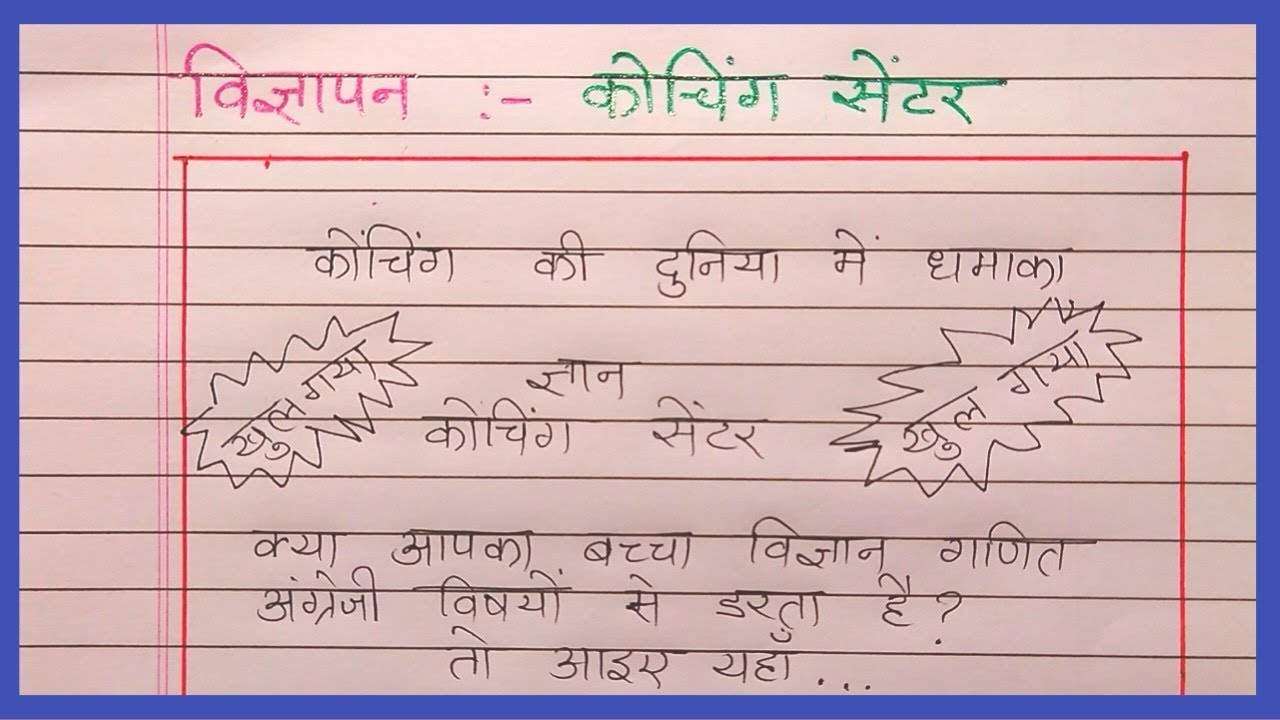 विज्ञापन :- कोचिंग सेंटर
कोंचिंग की दुनिया में धमाका
खुल गया
ज्ञान
खुल गया
कोचिंग सेंटर
क्या आपका बच्चा विज्ञान गणित
अंग्रेजी विषयों से डरता है ?
तो आइए यहाँ ...